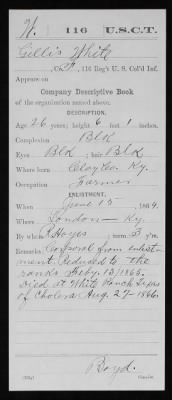 W. 116 U.S.C.T.
Gillis White
, 116 Reg't U. S. Col'd Inf.
Appears on
Company Descriptive Book
of the organization named above.
DESCRIPTION.
Age 26 years; height 6 feet 1 inches.
Complexion Blk
Eyes Blk ; hair Blk
Where born Clay Co. Ky.
Occupation Farmer
ENLISTMENT.
When June 15 , 1864.
Where London Ky.
By whom R Hayes ; term 3 y'rs.
Remarks: Corporal from enlist-
ment. Reduced to the
ranks Feby. 13/1865.
Died at White Ranch Texas
of Cholera Aug. 27- 1866.
Boyd.
Copyist.